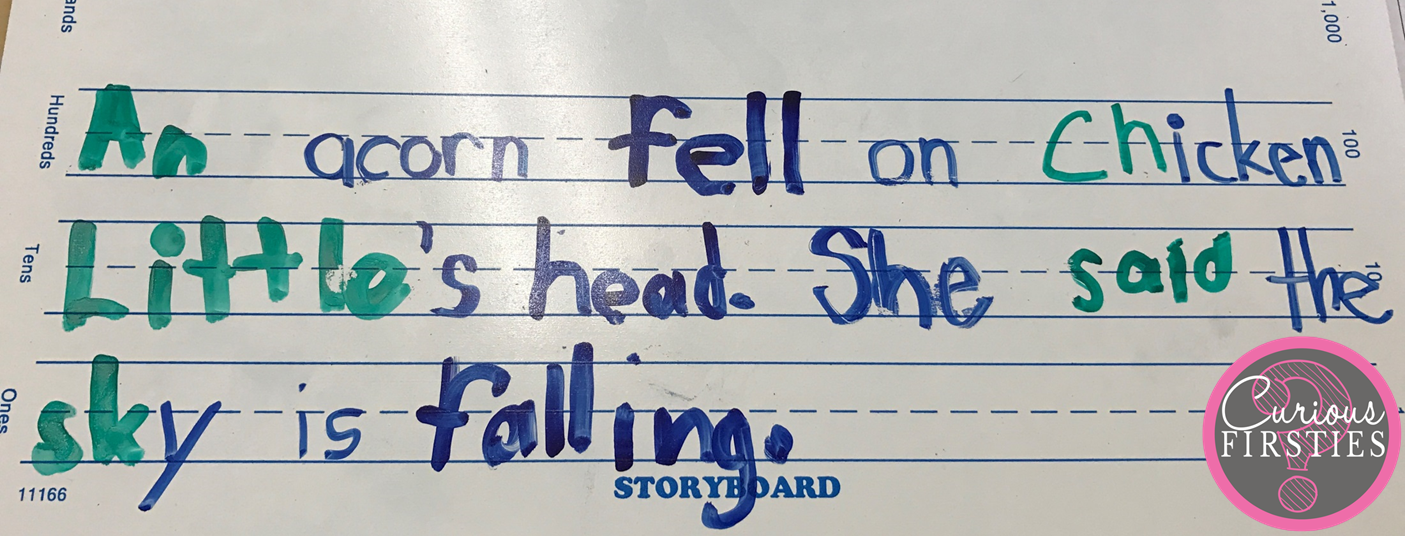 ands 1,000
Hundreds An acorn fell on Chicken 100
Tens Little's head. She said the 10
Ones sky is falling.
11166 STORYBOARD
Curious
FIRSTIES